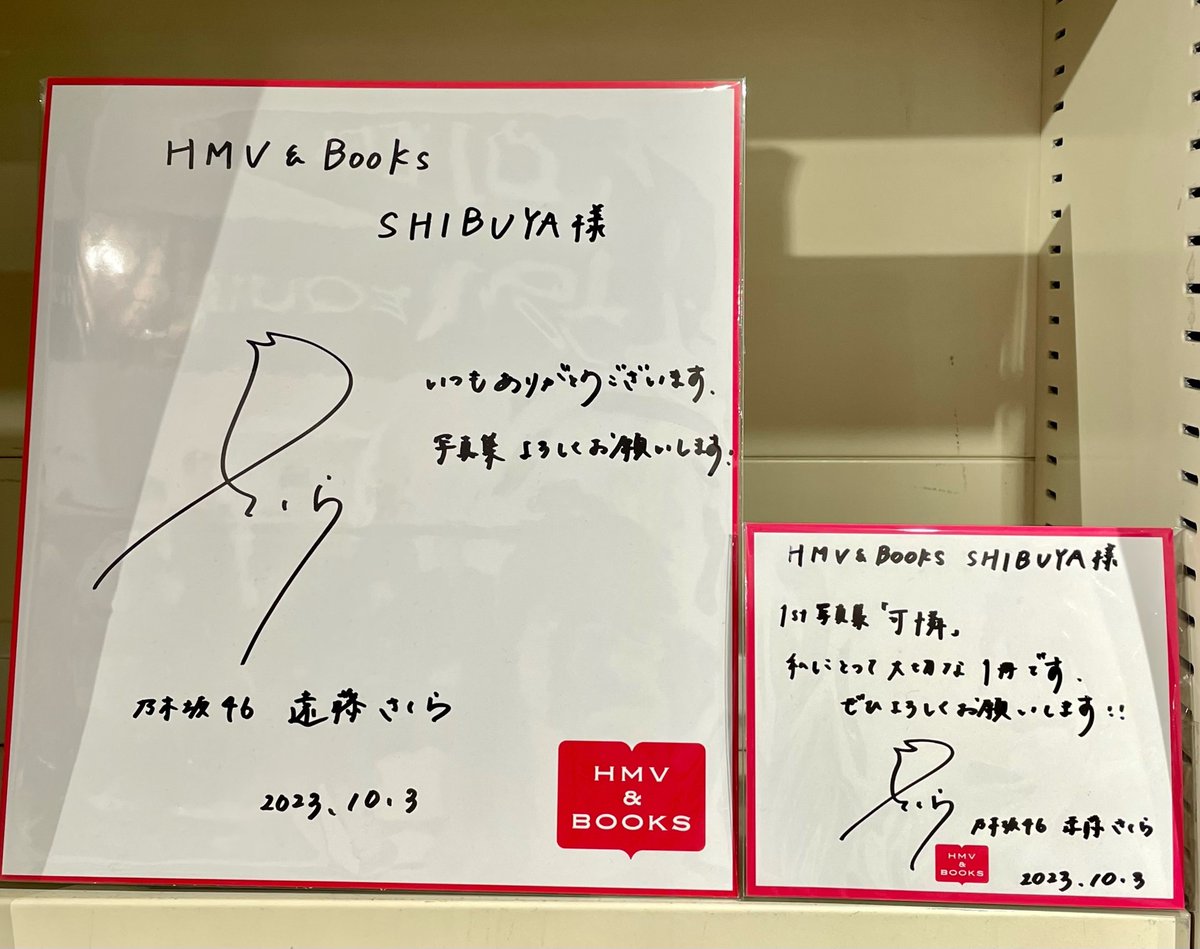 HMV & BOOKS
SHIBUYA様
いつもありがとうございます.
写真集 よろしくお願いします.
さくら
乃木坂46 遠藤さくら
2023.10.3
HMV
&
BOOKS
HMV & BOOKS SHIBUYA様
1st写真集「可憐」
私にとって大切な1冊です.
ぜひよろしくお願いします!!
さくら
乃木坂46 遠藤さくら
HMV
&
BOOKS
2023.10.3